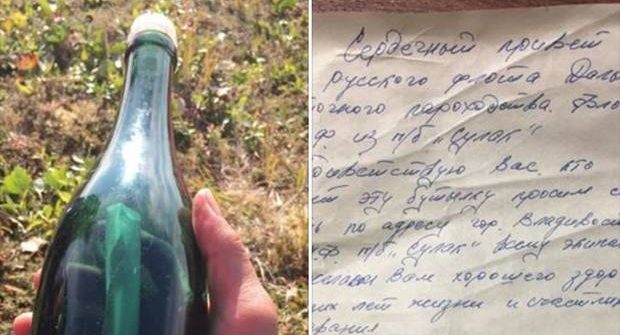 Сердечный привет
русского флота Даль
точного пароходства. Вло
Ф из п/б "Сулак"
ветствую Вас, кто
ет эту бутылку просим с
ь по адресу гор. Владивос
Ф п/б "Сулак" всему экипа
желаем Вам хорошего здор
их лет жизни и счастли
вания